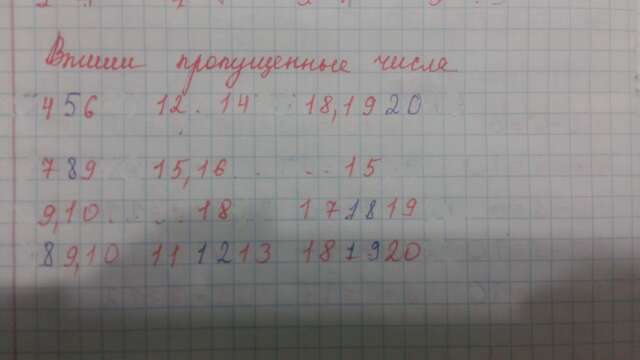 Впиши пропущенные числа
4 5 6 12 . 14 .. 18, 19 20
7 8 9 15, 16 .. .. 15
9, 10 .. .. 18 17 18 19
8 9, 10 11 12 13 18 19 20